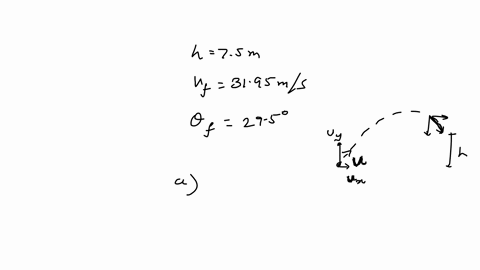 h = 7.5 m
v_f = 31.95 m/s
θ_f = 29.5°
u_y
u
u_x
h
a)